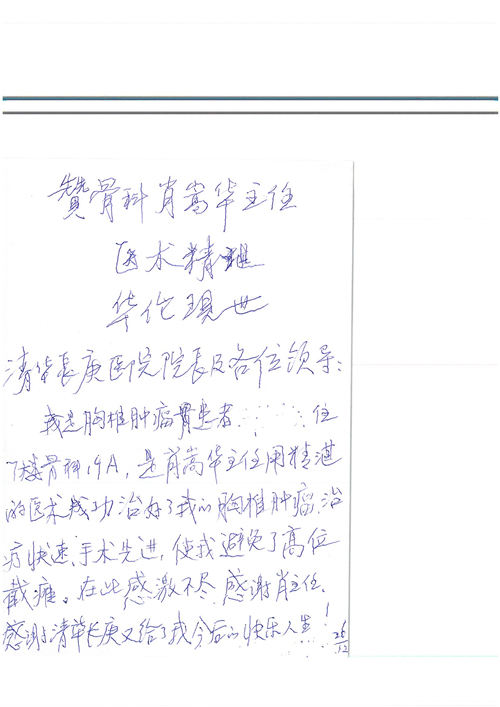 赞骨科肖嵩华主任
医术精湛
华佗现世
清华长庚医院院长及各位领导:
我是胸椎肿瘤患者 住
7楼骨科19A,是肖嵩华主任用精湛
的医术成功治好了我的胸椎肿瘤,治
疗快速、手术先进,使我避免了高位
截瘫。在此感激不尽 感谢肖主任、
感谢清华长庚又给了我今后的快乐人生!
26/12